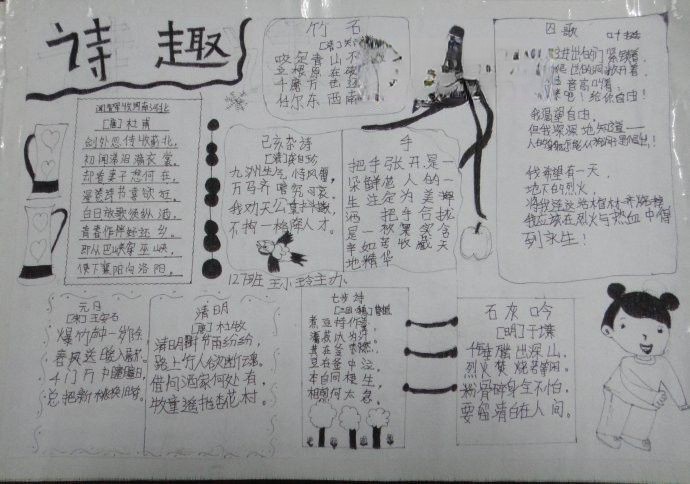 诗趣
竹石
咬定青山不
立根原在破
千磨万击
任尔东西南
囚歌
叶挺
进出的门紧锁着
爬出的洞敞开着
高叫着
吧！给你自由！
我渴望自由，
但我深深地知道——
人的
爬出！
我希望有一天，
地下的烈火，
将我连这活棺材一齐烧掉
我应该在烈火与热血中得
到永生！
闻官军收河南河北
[唐]杜甫
剑外忽传收蓟北，
初闻涕泪满衣裳，
却看妻子愁何在，
漫卷诗书喜欲狂。
白日放歌须纵酒，
青春作伴好还乡。
即从巴峡穿巫峡，
便下襄阳向洛阳。
己亥杂诗
[清]龚自珍
九洲生气恃风雷，
万马齐喑究可哀。
我劝天公重抖擞，
不拘一格降人才。
手
把手张开是一
朵鲜
人的一
生注定为美
酒
把手合拢
是一枚果实含
辛如苦收藏天
地精华
127班王小玲主办
元日
[宋]王安石
爆竹声中一岁除
春风送暖入屠苏。
千门万户曈曈日，
总把新桃换旧符。
清明
[唐]杜牧
清明时节雨纷纷，
路上行人欲断魂。
借问酒家何处有，
牧童遥指杏花村。
七步诗
煮豆持作羹，
漉菽以为汁
萁在釜
豆在釜中泣，
本自同根生，
相煎何太急。
石灰吟
[明]于
千锤
出深山，
烈火焚烧若等闲。
粉骨碎身全不怕，
要留清白在人间。